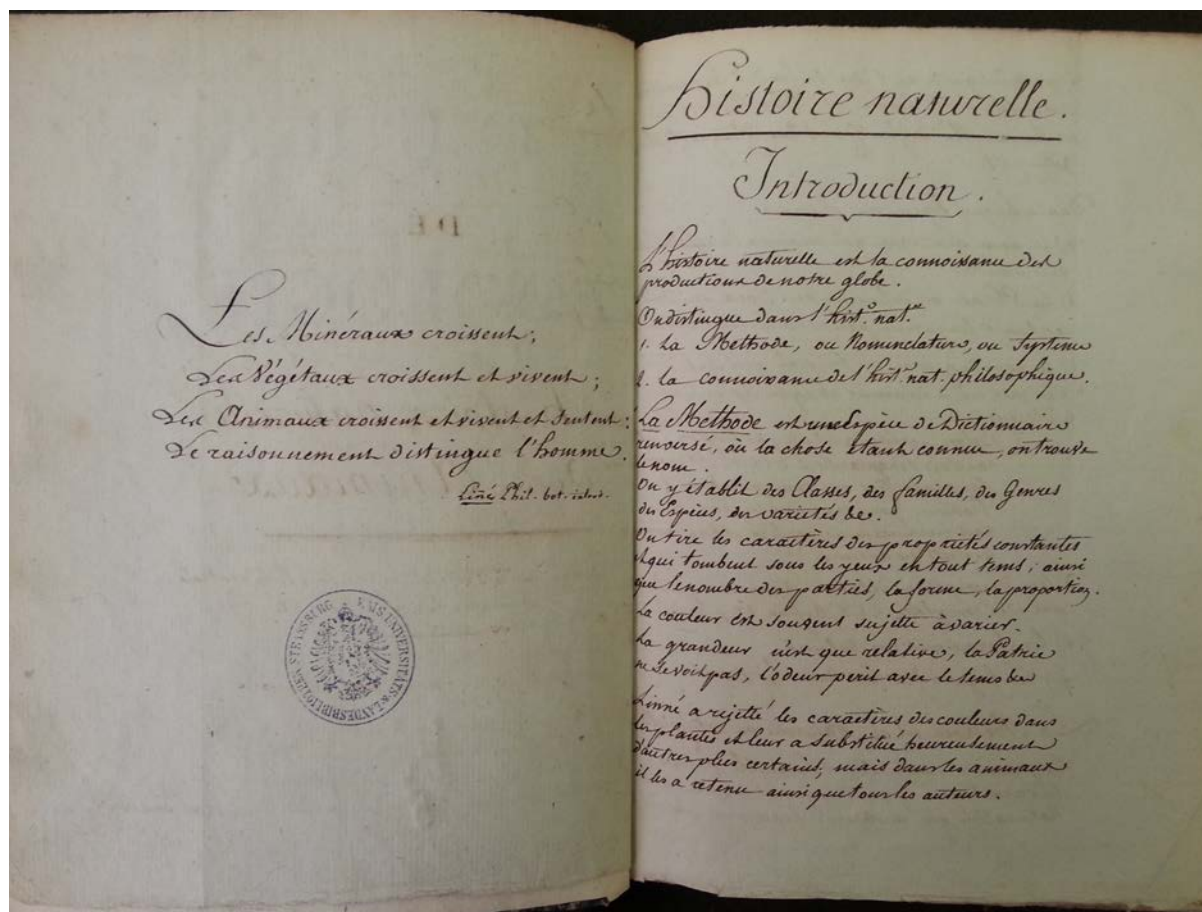 Les Minéraux croissent;
Les Végétaux croissent et vivent;
Les Animaux croissent et vivent et sentent:
Le raisonnement distingue l'homme.
Linné Phil. bot. introd.
KAIS. UNIVERSITÄTS & LANDESBIBLIOTHEK STRASSBURG
Histoire naturelle.
Introduction.
L'histoire naturelle est la connoissance des
productions de notre globe.
On distingue dans l'hist.e nat.lle
1. La Methode, ou Nomenclature, ou Systeme
2. la connoissance de l'hist. nat. philosophique.
La Methode est une Espèce de Dictionnaire
renversé, où la chose étant connue, on trouve
le nom.
On y établit des Classes, des familles, des Genres
des Espèces, des varietés &c.
On tire les caractères des propriétés constantes
et qui tombent sous les yeux en tout tems; ainsi
que le nombre des parties, la forme, la proportion.
La couleur est souvent sujette à varier.
La grandeur n'est que relative, la Patrie
ne se voit pas, l'odeur perit avec le tems &c
Linné a rejetté les caractères des couleurs dans
les plantes et leur a substitué heureusement
d'autres plus certains, mais dans les animaux
il les a retenu ainsi que tous les auteurs.